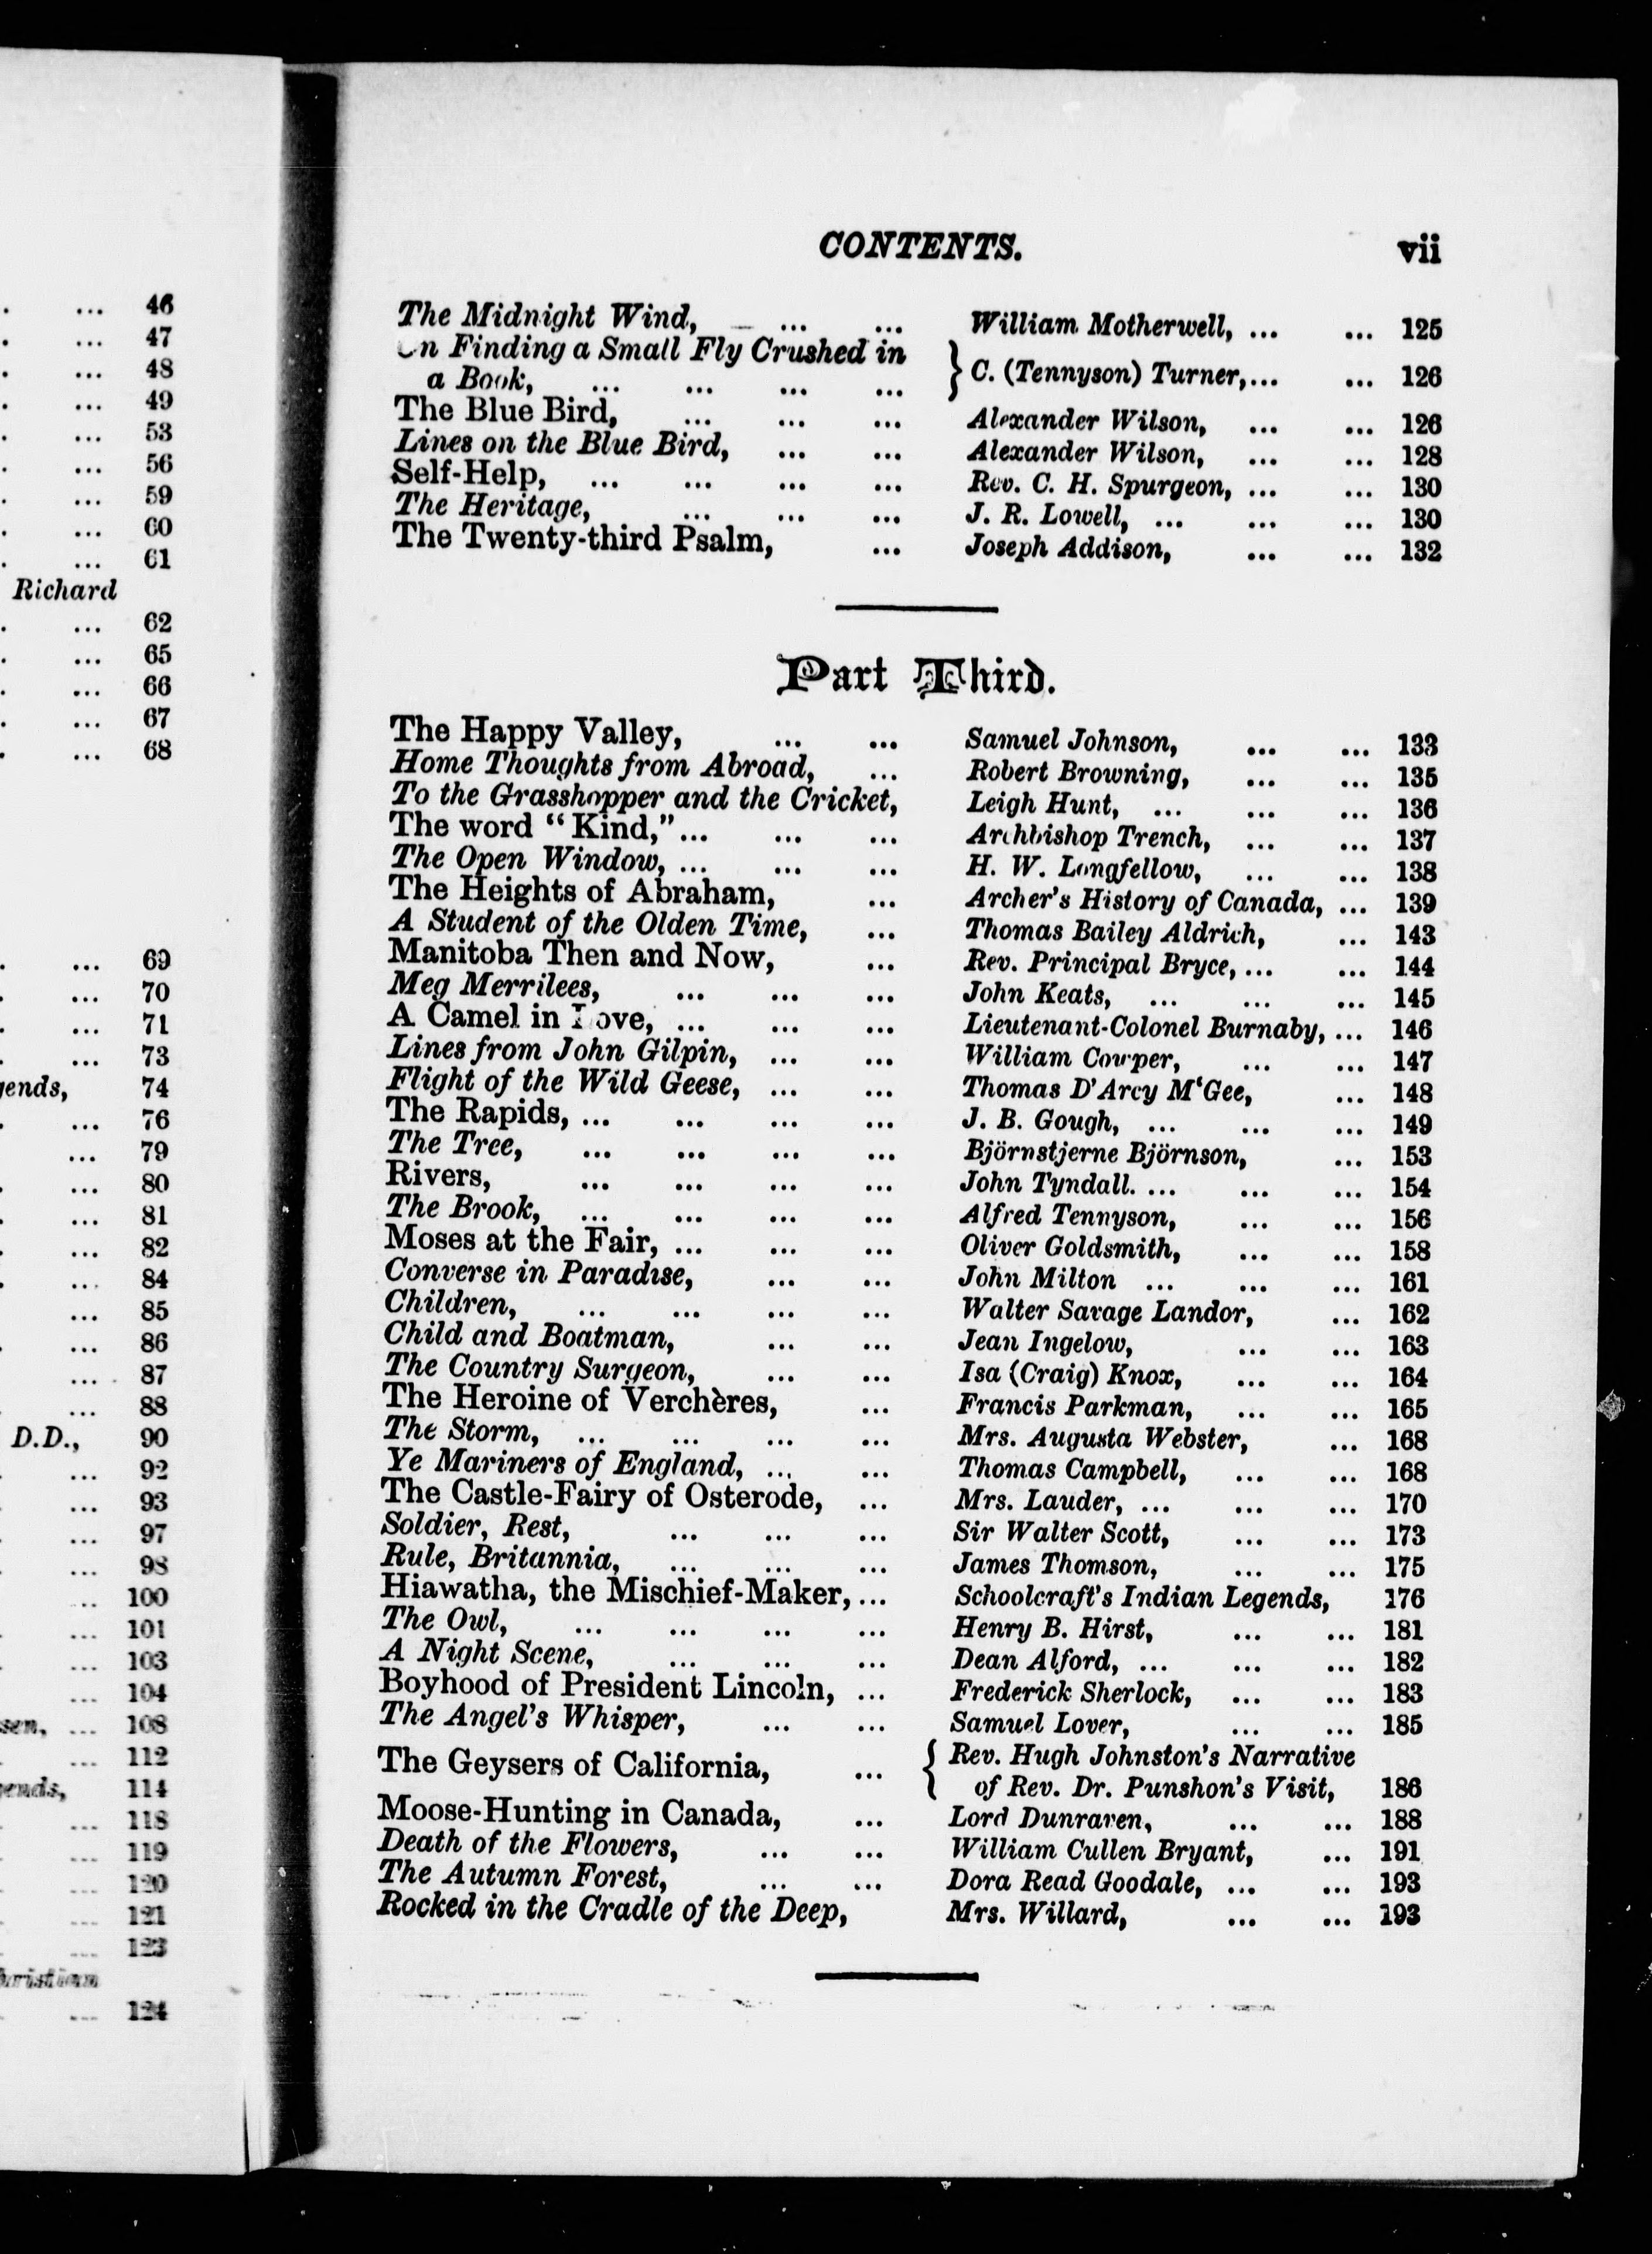 ... 46
... 47
... 48
... 49
... 53
... 56
... 59
... 60
... 61
Richard
... 62
... 65
... 66
... 67
... 68
... 69
... 70
... 71
... 73
gends, 74
... 76
... 79
... 80
... 81
... 82
... 84
... 85
... 86
... 87
... 88
D.D., 90
... 92
... 93
... 97
... 98
... 100
... 101
... 103
... 104
sen, ... 108
... 112
gends, 114
... 118
... 119
... 120
... 121
... 123
... 124
CONTENTS. vii
The Midnight Wind, ... ... William Motherwell, ... ... 125
On Finding a Small Fly Crushed in
a Book, ... ... ... ... } C. (Tennyson) Turner,... ... 126
The Blue Bird, ... ... ... Alexander Wilson, ... ... 126
Lines on the Blue Bird, ... ... Alexander Wilson, ... ... 128
Self-Help, ... ... ... ... Rev. C. H. Spurgeon, ... ... 130
The Heritage, ... ... ... J. R. Lowell, ... ... ... 130
The Twenty-third Psalm, ... Joseph Addison, ... ... 132
Part Third.
The Happy Valley, ... ... Samuel Johnson, ... ... 133
Home Thoughts from Abroad, ... Robert Browning, ... ... 135
To the Grasshopper and the Cricket, Leigh Hunt, ... ... ... 136
The word "Kind,"... ... ... Archbishop Trench, ... ... 137
The Open Window, ... ... ... H. W. Longfellow, ... ... 138
The Heights of Abraham, ... Archer's History of Canada, ... 139
A Student of the Olden Time, ... Thomas Bailey Aldrich, ... 143
Manitoba Then and Now, ... Rev. Principal Bryce, ... ... 144
Meg Merrilees, ... ... ... John Keats, ... ... ... 145
A Camel in Love, ... ... ... Lieutenant-Colonel Burnaby, ... 146
Lines from John Gilpin, ... ... William Cowper, ... ... 147
Flight of the Wild Geese, ... ... Thomas D'Arcy M'Gee, ... 148
The Rapids, ... ... ... ... J. B. Gough, ... ... ... 149
The Tree, ... ... ... ... Björnstjerne Björnson, ... 153
Rivers, ... ... ... ... John Tyndall. ... ... ... 154
The Brook, ... ... ... ... Alfred Tennyson, ... ... 156
Moses at the Fair, ... ... ... Oliver Goldsmith, ... ... 158
Converse in Paradise, ... ... John Milton ... ... ... 161
Children, ... ... ... ... Walter Savage Landor, ... 162
Child and Boatman, ... ... Jean Ingelow, ... ... 163
The Country Surgeon, ... ... Isa (Craig) Knox, ... ... 164
The Heroine of Verchères, ... Francis Parkman, ... ... 165
The Storm, ... ... ... ... Mrs. Augusta Webster, ... 168
Ye Mariners of England, ... ... Thomas Campbell, ... ... 168
The Castle-Fairy of Osterode, ... Mrs. Lauder, ... ... ... 170
Soldier, Rest, ... ... ... Sir Walter Scott, ... ... 173
Rule, Britannia, ... ... ... James Thomson, ... ... 175
Hiawatha, the Mischief-Maker, ... Schoolcraft's Indian Legends, 176
The Owl, ... ... ... ... Henry B. Hirst, ... ... 181
A Night Scene, ... ... ... Dean Alford, ... ... ... 182
Boyhood of President Lincoln, ... Frederick Sherlock, ... ... 183
The Angel's Whisper, ... ... Samuel Lover, ... ... 185
The Geysers of California, ... { Rev. Hugh Johnston's Narrative
of Rev. Dr. Punshon's Visit, 186
Moose-Hunting in Canada, ... Lord Dunraven, ... ... 188
Death of the Flowers, ... ... William Cullen Bryant, ... 191
The Autumn Forest, ... ... Dora Read Goodale, ... ... 193
Rocked in the Cradle of the Deep, Mrs. Willard, ... ... 193